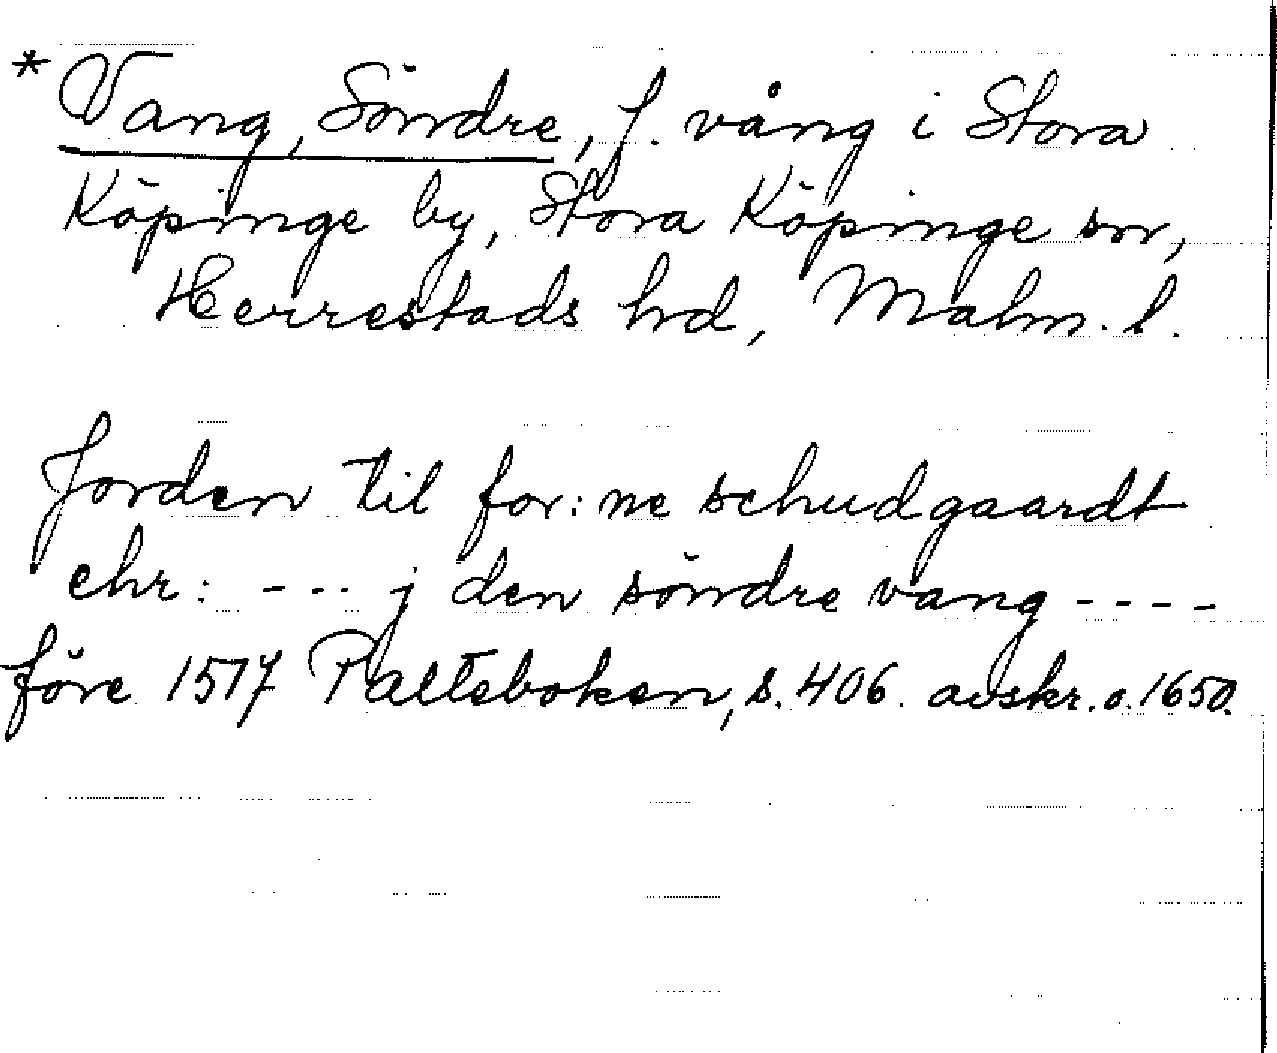 * Vang, Söndre, f. vång i Stora
Köpinge by, Stora Köpinge sn,
Herrestads hd, Malm. l.
Jorden til for: ne schudgaardt
ehr: - - - j den söndre vang - - - -
före 1517 Palteboken, s. 406. avskr. o. 1650.